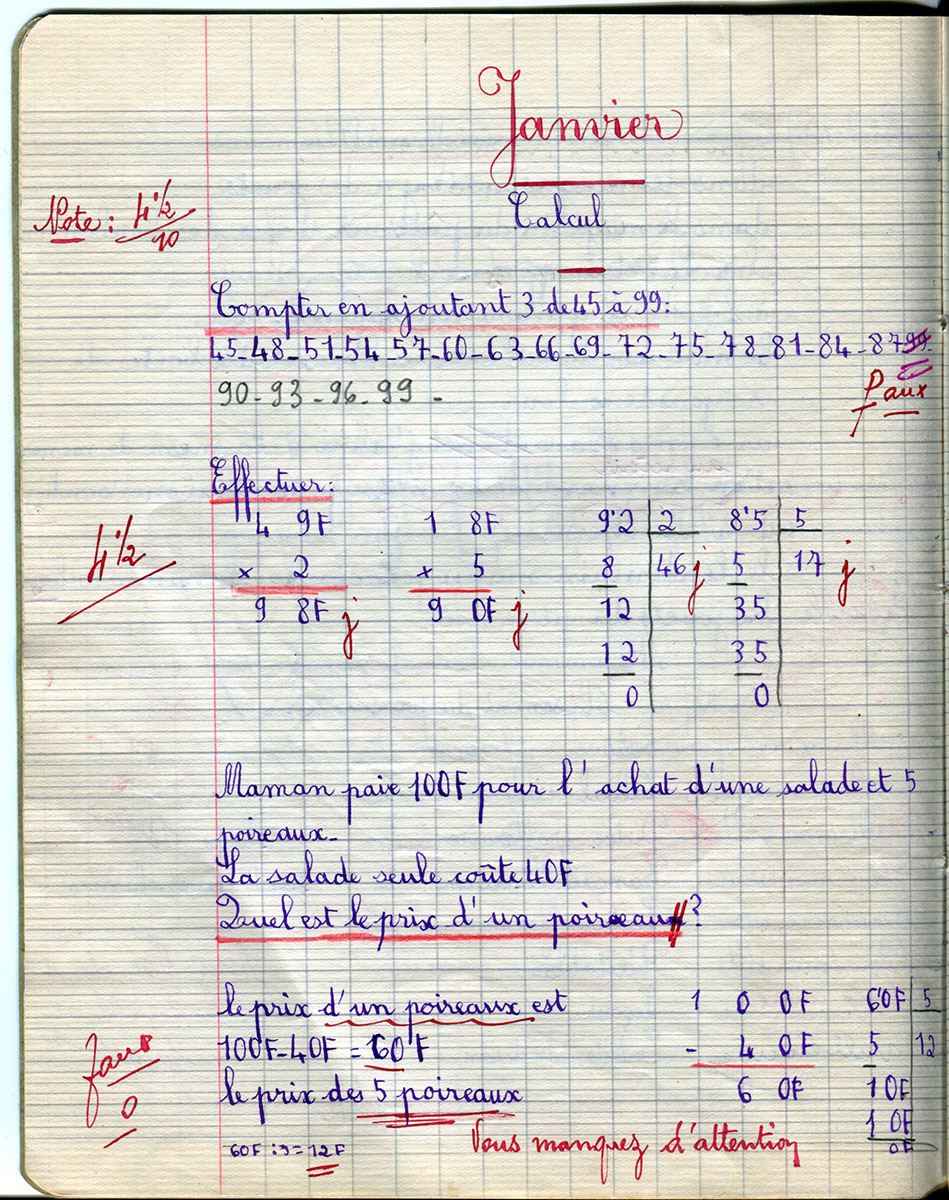 Janvier
Note : 4 1/2
10
Calcul
Compter en ajoutant 3 de 45 à 99.
45-48-51-54-57-60-63-66-69-72-75-78-81-84-87 99.
90-93-96-99-
Faux
Effectuer:
4 1/2
4 9F 1 8F 9'2 2 8'5 5
x 2 x 5 8 46 j 5 17 j
9 8F j 9 0F j 12 35
12 35
0 0
Maman paie 100F pour l'achat d'une salade et 5
poireaux-
La salade seule coûte 40F
Quel est le prix d'un poireaux?
le prix d'un poireaux est 1 0 0F 6'0F 5
100F-40F = 60F - 4 0F 5 12
Faux
0
le prix des 5 poireaux 6 0F 10F
Vous manquez d'attention 1 0F
60F:5=12F 0F